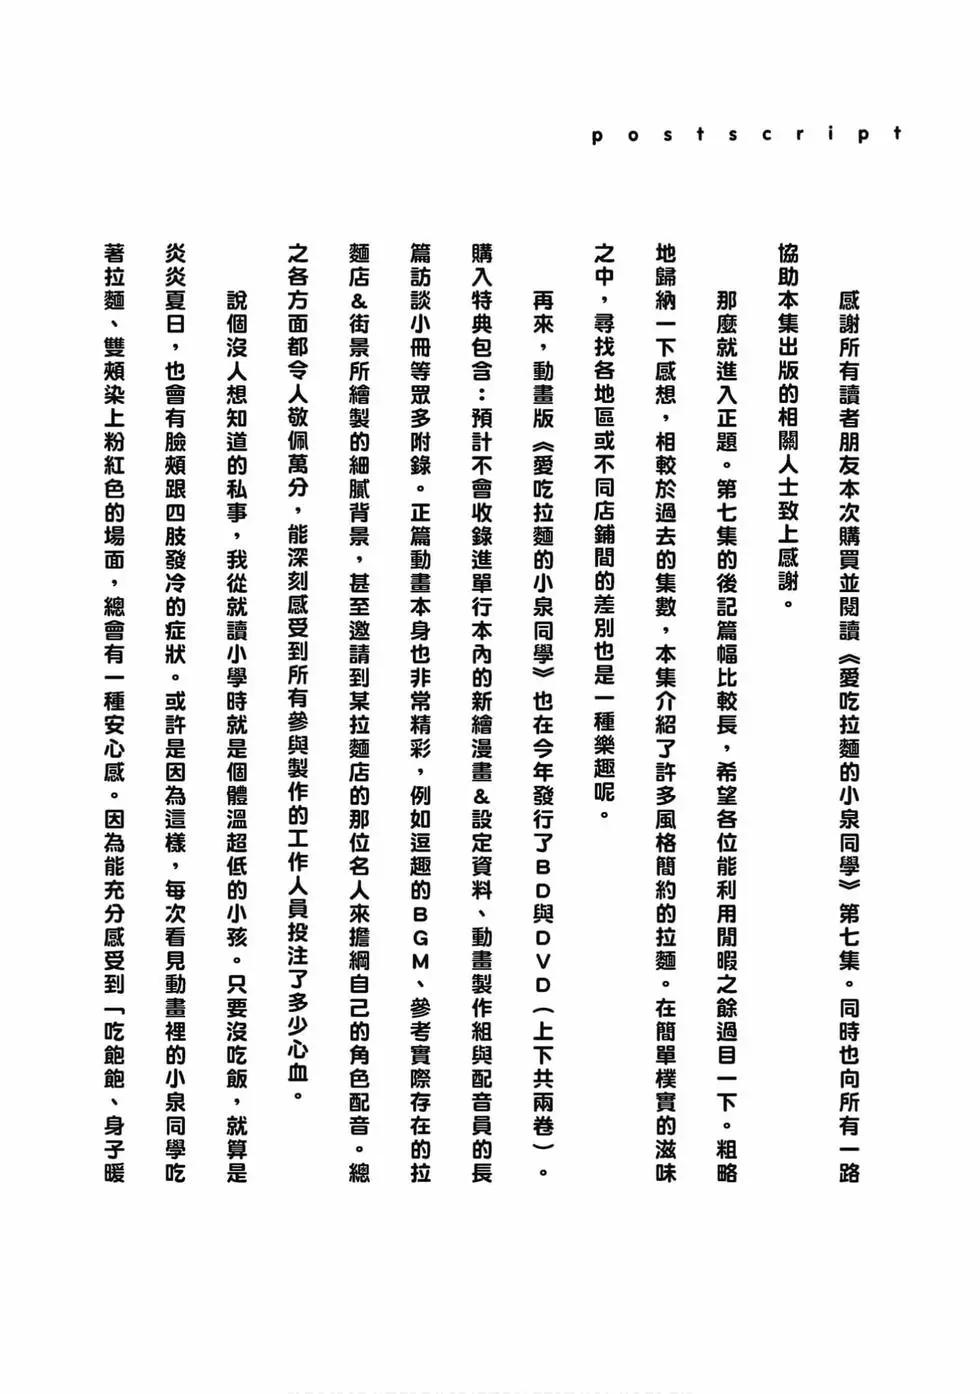 postscript
感謝所有讀者朋友本次購買並閱讀《愛吃拉麵的小泉同學》第七集。同時也向所有一路
協助本集出版的相關人士致上感謝。
那麼就進入正題。第七集的後記篇幅比較長，希望各位能利用閒暇之餘過目一下。粗略
地歸納一下感想，相較於過去的集數，本集介紹了許多風格簡約的拉麵。在簡單樸實的滋味
之中，尋找各地區或不同店鋪間的差別也是一種樂趣呢。
再來，動畫版《愛吃拉麵的小泉同學》也在今年發行了BD與DVD（上下共兩卷）。
購入特典包含：預計不會收錄進單行本內的新繪漫畫&設定資料、動畫製作組與配音員的長
篇訪談小冊等眾多附錄。正篇動畫本身也非常精彩，例如逗趣的BGM、參考實際存在的拉
麵店&街景所繪製的細膩背景，甚至邀請到某拉麵店的那位名人來擔綱自己的角色配音。總
之各方面都令人敬佩萬分，能深刻感受到所有參與製作的工作人員投注了多少心血。
說個沒人想知道的私事，我從就讀小學時就是個體溫超低的小孩。只要沒吃飯，就算是
炎炎夏日，也會有臉頰跟四肢發冷的症狀。或許是因為這樣，每次看見動畫裡的小泉同學吃
著拉麵、雙頰染上粉紅色的場面，總會有一種安心感。因為能充分感受到「吃飽飽、身子暖